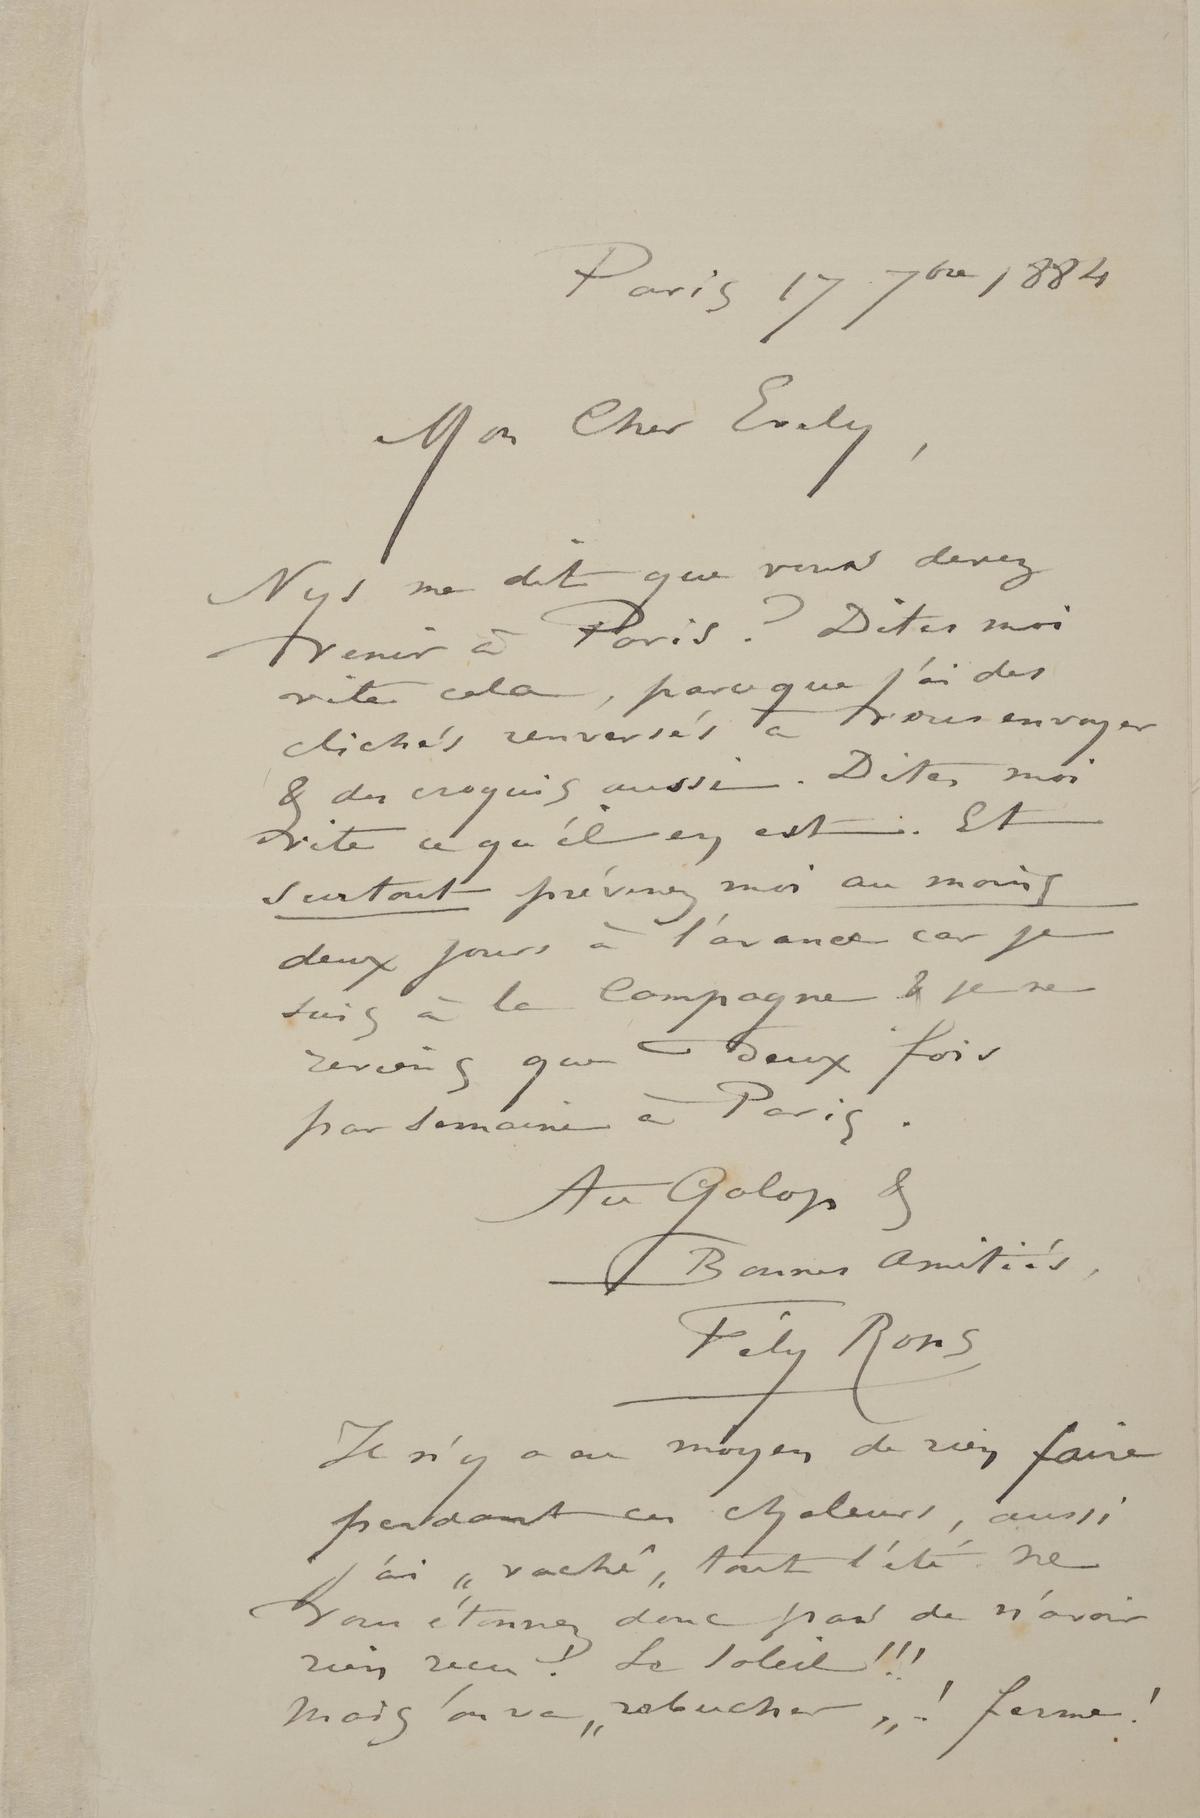 Paris 17 7bre 1884
Mon Cher Evely,
Nys me dit que vous devez
venir à Paris ? Dites moi
vite cela, parceque j'ai des
clichés renversés à vous envoyer
& des croquis aussi. Dites moi
vite ce qu'il en est. Et
surtout prévenez moi au moins
deux jours à l'avance car je
suis à la Campagne & je ne
reviens que deux fois
par semaine à Paris.
Au Galop &
Bonnes Amitiés,
Fély Rops
Il n'y a eu moyen de rien faire
pendant ces chaleurs, aussi
j'ai „vaché„ tout l'été. Ne
vous étonnez donc pas de n'avoir
rien recu ! Le Soleil !!!
Mais on va „rebucher„ ! ferme !